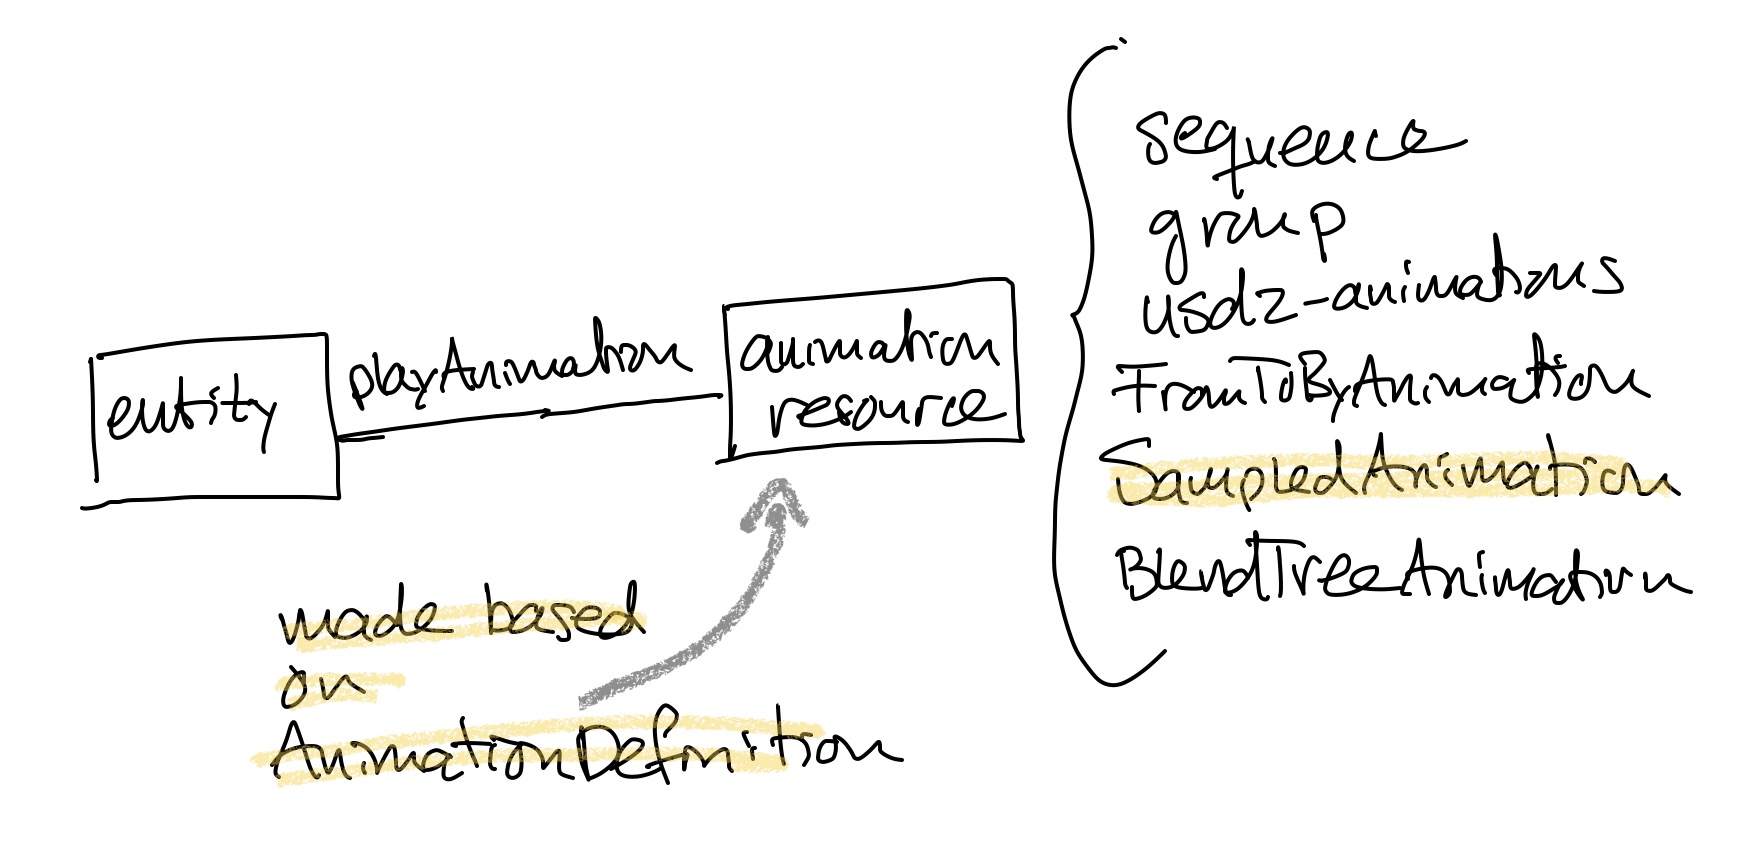 entity
playAnimation
animation
resource
sequence
group
usdz-animations
FromToByAnimation
SampledAnimation
BlendTreeAnimation
made based
on
AnimationDefinition